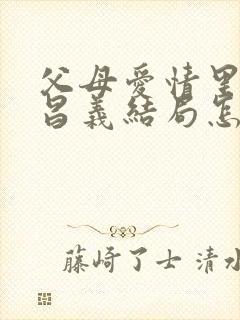 父母愛情里
昌義結局怎
藤崎了士 清水